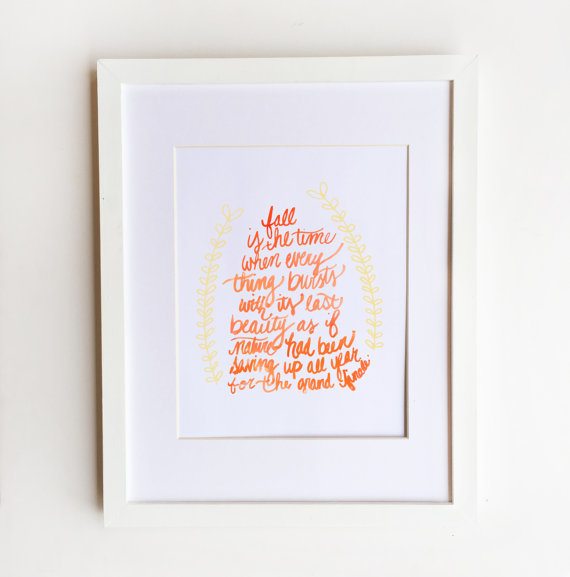 fall
is the time
when every
thing bursts
with its last
beauty as if
nature had been
saving up all year
for the grand finale.